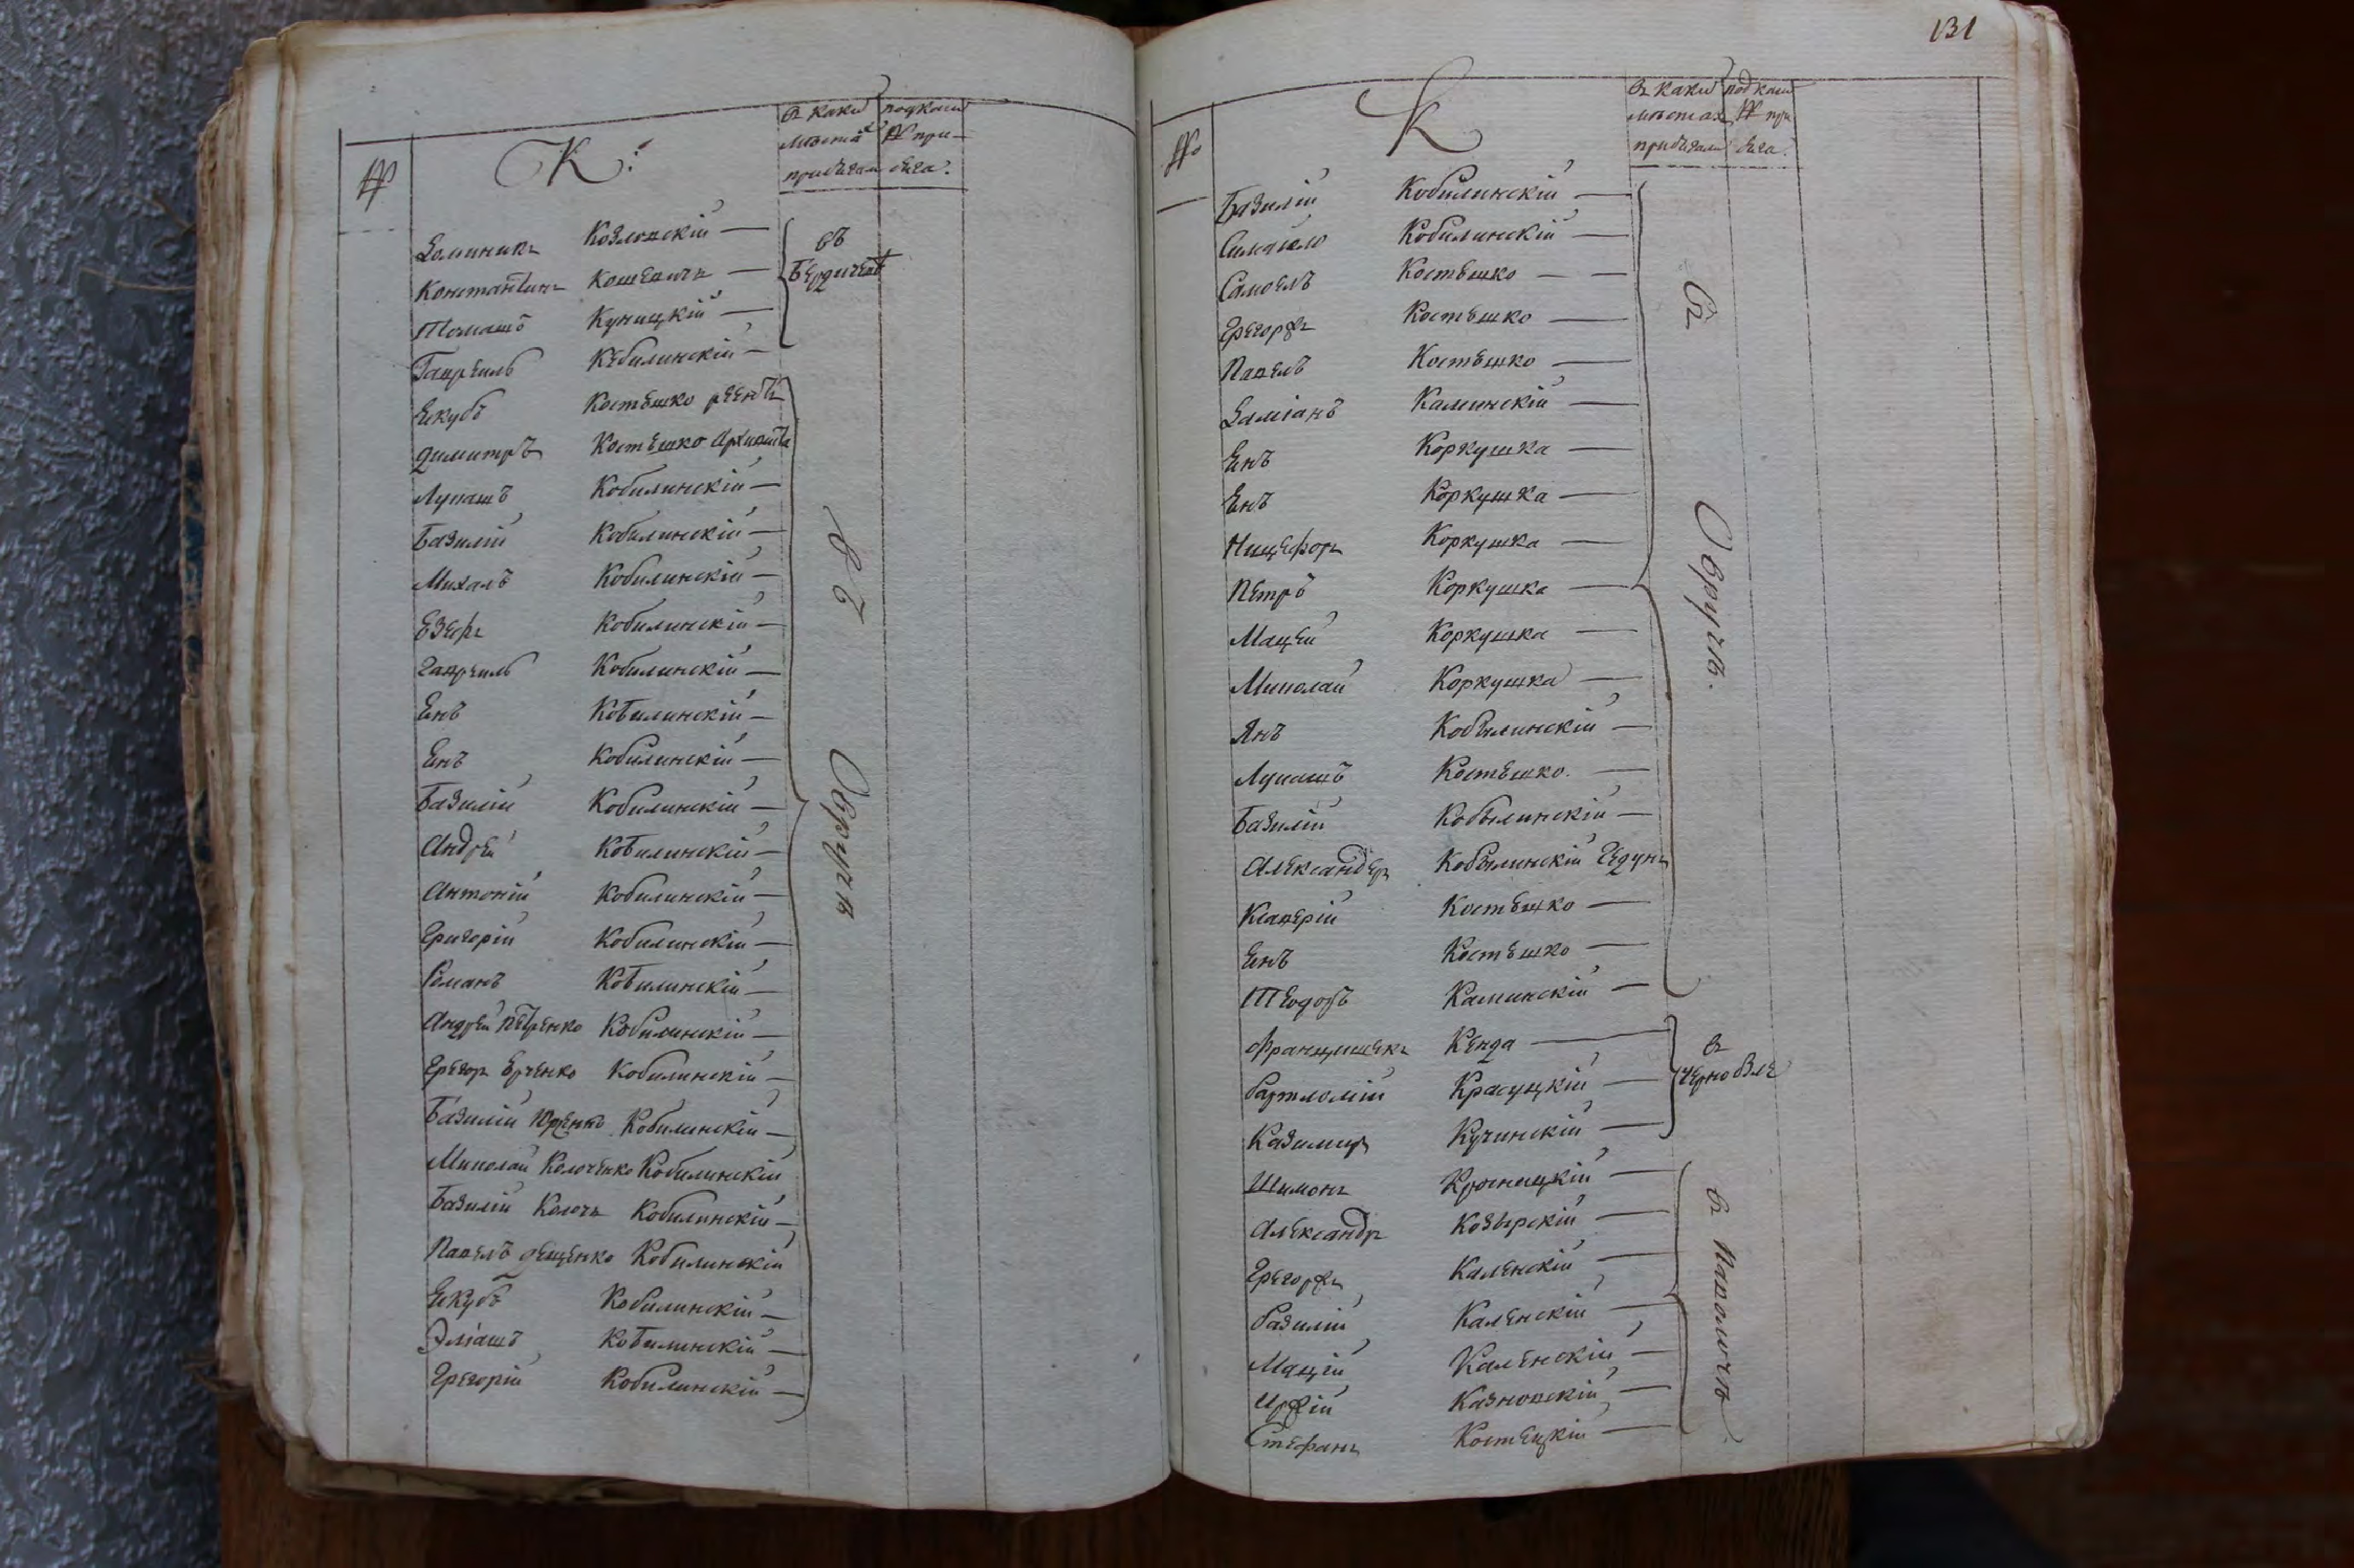 131
К:
въ какихъ
местахъ
присягали
под каким
№ при-
сяга.
№
Доминикъ Козловскій
Константинъ Кошевичъ
Томашъ Куницкій
въ
Бердичевѣ
Гавріиль Кобилинскій
Якубъ Костюшко
Димитръ Костюшко
Лукашъ Кобилинскій
Базилій Кобилинскій
Михалъ Кобилинскій
Езефъ Кобилинскій
Гавріиль Кобилинскій
Янъ Кобилинскій
Янъ Кобилинскій
Базилій Кобилинскій
Андрей Кобилинскій
Антоній Кобилинскій
Григорій Кобилинскій
Романъ Кобилинскій
Андрей Петренко Кобилинскій
Грегор Юрченко Кобилинскій
Базилій Юренко Кобилинскій
Миколай Колоченко Кобилинскій
Базилій Колочъ Кобилинскій
Павелъ Дещенко Кобилинскій
Якубъ Кобилинскій
Эліашъ Кобилинскій
Грегорій Кобилинскій
въ Овручѣ
К
въ какихъ
местах
присягали
под каким
№ при
сяга.
№
Базилій Кобилинскій
Самойло Кобилинскій
Самоелъ Костюшко
Грегоржъ Костюшко
Павелъ Костюшко
Даміанъ Каминскій
Янъ Коркушка
Янъ Коркушка
Ницефоръ Коркушка
Петръ Коркушка
Мацей Коркушка
Миколай Коркушка
Янъ Кобылинскій
Лукашъ Костюшко
Базилій Кобылинскій
Александеръ Кобылинскій Гедунъ
Ксаверій Костюшко
Янъ Костюшко
Теодоръ Каминскій
въ Овручѣ.
Францишекъ Кенда
Бартломій Красуцкій
Казимиръ Кучинскій
въ
Чернобыле
Шимонъ Кросницкій
Александръ Козырскій
Грегоржъ Каленскій
Базилій Каленскій
Мацей Каленскій
Иржій Казновскій
Стефанъ Костецкій
въ Наполичѣ